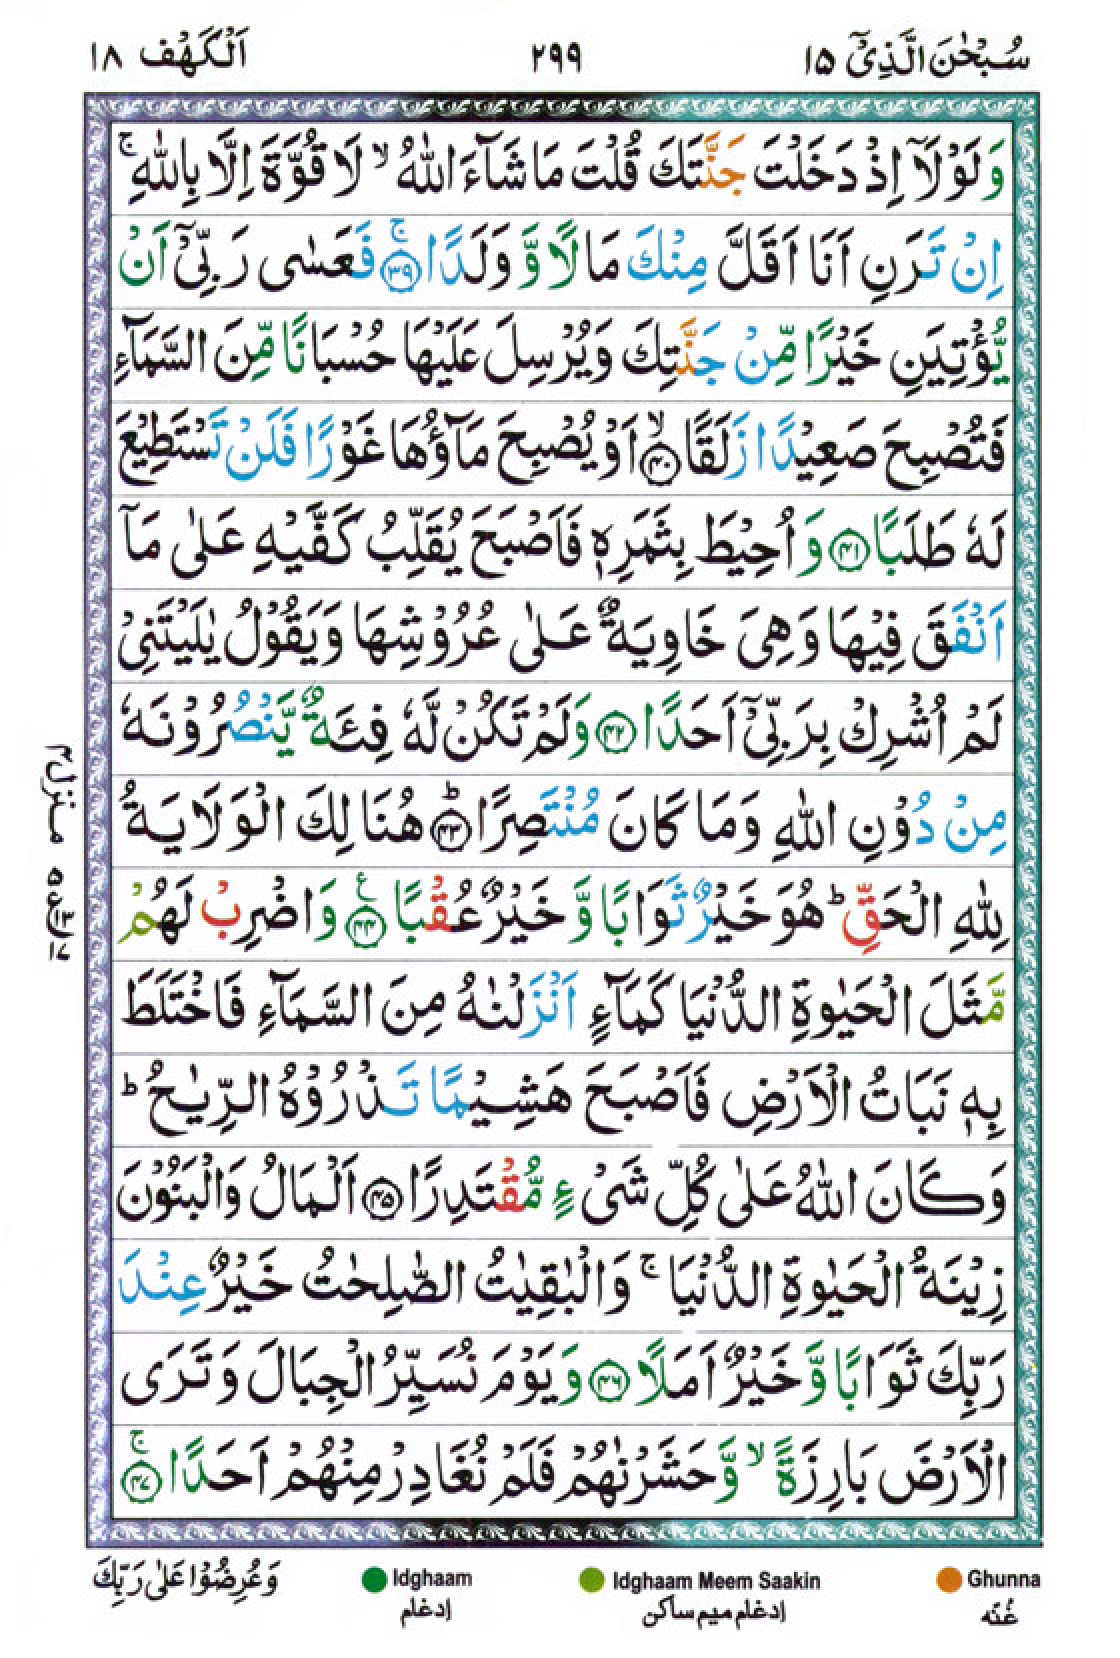 سُبْحٰنَ الَّذِیْۤ ۱۵
۲۹۹
اَلْكَهْف ۱۸
وَلَوْلَاۤ اِذْ دَخَلْتَ جَنَّتَكَ قُلْتَ مَا شَآءَ اللّٰهُ ۙ لَا قُوَّةَ اِلَّا بِاللّٰهِ ۚ
اِنْ تَرَنِ اَنَا اَقَلَّ مِنْكَ مَالًا وَّ وَلَدًا ۚ ﴿۳۹﴾ فَعَسٰى رَبِّیْۤ اَنْ
یُّؤْتِیَنِ خَیْرًا مِّنْ جَنَّتِكَ وَیُرْسِلَ عَلَیْهَا حُسْبَانًا مِّنَ السَّمَآءِ
فَتُصْبِحَ صَعِیْدًا زَلَقًا ۙ ﴿۴۰﴾ اَوْ یُصْبِحَ مَآؤُهَا غَوْرًا فَلَنْ تَسْتَطِیْعَ
لَهٗ طَلَبًا ﴿۴۱﴾ وَ اُحِیْطَ بِثَمَرِهٖ فَاَصْبَحَ یُقَلِّبُ كَفَّیْهِ عَلٰى مَاۤ
اَنْفَقَ فِیْهَا وَهِیَ خَاوِیَةٌ عَلٰى عُرُوْشِهَا وَیَقُوْلُ یٰلَیْتَنِیْ
لَمْ اُشْرِكْ بِرَبِّیْۤ اَحَدًا ﴿۴۲﴾ وَلَمْ تَكُنْ لَّهٗ فِئَةٌ یَّنْصُرُوْنَهٗ
مِنْ دُوْنِ اللّٰهِ وَمَا كَانَ مُنْتَصِرًا ؕ ﴿۴۳﴾ هُنَالِكَ الْوَلَایَةُ
لِلّٰهِ الْحَقِّ ؕ هُوَ خَیْرٌ ثَوَابًا وَّ خَیْرٌ عُقْبًا ﴿۴۴﴾ ع وَاضْرِبْ لَهُمْ
مَّثَلَ الْحَیٰوةِ الدُّنْیَا كَمَآءٍ اَنْزَلْنٰهُ مِنَ السَّمَآءِ فَاخْتَلَطَ
بِهٖ نَبَاتُ الْاَرْضِ فَاَصْبَحَ هَشِیْمًا تَذْرُوْهُ الرِّیٰحُ ؕ
وَكَانَ اللّٰهُ عَلٰى كُلِّ شَیْءٍ مُّقْتَدِرًا ﴿۴۵﴾ اَلْمَالُ وَالْبَنُوْنَ
زِیْنَةُ الْحَیٰوةِ الدُّنْیَا ۚ وَالْبٰقِیٰتُ الصّٰلِحٰتُ خَیْرٌ عِنْدَ
رَبِّكَ ثَوَابًا وَّ خَیْرٌ اَمَلًا ﴿۴۶﴾ وَیَوْمَ نُسَیِّرُ الْجِبَالَ وَتَرَى
الْاَرْضَ بَارِزَةً ۙ وَّ حَشَرْنٰهُمْ فَلَمْ نُغَادِرْ مِنْهُمْ اَحَدًا ۚ ﴿۴۷﴾
منزل۴
وَعُرِضُوْا عَلٰى رَبِّكَ
Idghaam
ادغام
Idghaam Meem Saakin
ادغام میم ساکن
Ghunna
غُنّه